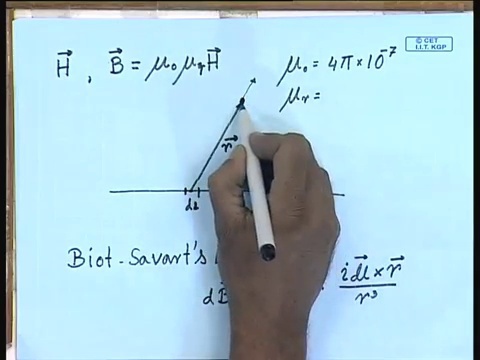 © CET
I.I.T. KGP
H⃗ , B⃗ = μ₀ μᵣ H⃗
μ₀ = 4π × 10⁻⁷
μᵣ =
r⃗
dl
Biot-Savart's
dB
i dl⃗ × r⃗
r³